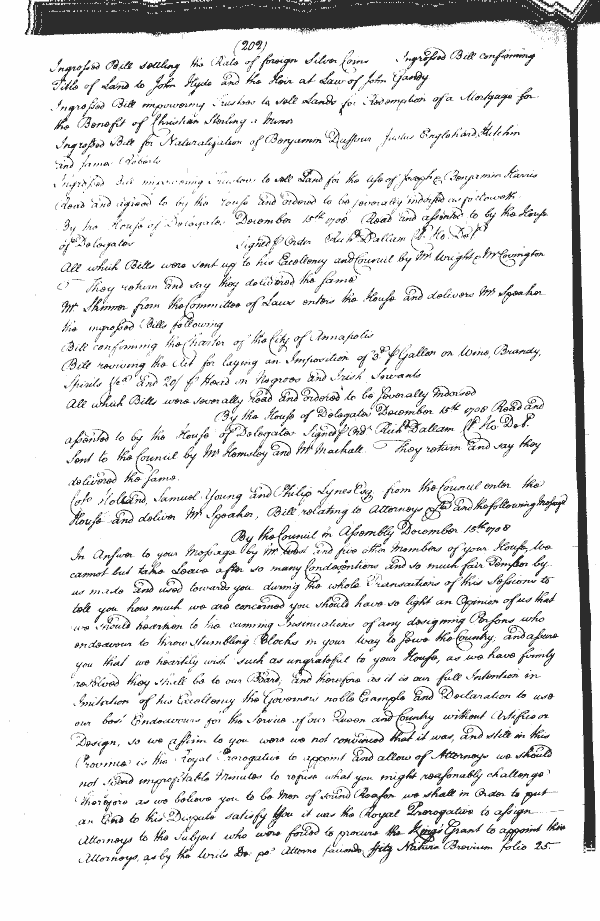 (202)
Ingrossed Bill settling the Rate of foreign Silver Coins Ingrossed Bill confirming
Title of Land to John Hyde and the Heir at Law of John
Ingrossed Bill impowering Trustees to sell Lands for Redemption of a Mortgage for
the Benefit of Christian Sterling a Minor
Ingrossed Bill for Naturalization of Benjamin Duffour, Justus Englehard Kitchin
and James Roberts
Ingrossed Bill impowering Trustees to sell Land for the use of Joseph & Benjamin Harris
Read and agreed to by the House and ordered to be severally indorsed as followeth
By the House of Delegates December 15th 1708 Read and assented to by the House
of Delegates Signed p Order Richd Dallam Cl. Ho. Del.
All which Bills were sent up to his Excellency and Council by Mr Wright & Mr Covington
They return and say they delivered the same
Mr Skinner from the Committee of Laws enters the House and delivers Mr Speaker
the ingrossed Bills following
Bill confirming the Charter of the City of Annapolis
Bill reviving the Act for laying an Imposition of 3d p Gallon on Wine, Brandy,
Spirits and 20s p Head on Negroes and Irish Servants
All which Bills were severally read and ordered to be severally indorsed
By the House of Delegates December 15th 1708 Read and
assented to by the House of Delegates Signed p Ordr Richd Dallam Cl. Ho. Del.
Sent to the Council by Mr Hemsley and Mr Machall They return and say they
delivered the same.
Holland, Samuel Young and Philip Lynes Esqrs from the Council enter the
House and deliver Mr Speaker, Bill relating to Attorneys and the following Message
By the Council in Assembly December 15th 1708
In Answer to your Message by Mr and five other Members of your House, We
cannot but take Leave after so many Condescentions and so much fair Temper by
us made and used towards you during the whole Transactions of this Sessions to
tell you how much we are concerned you should have so light an Opinion of us that
we should hearken to the cunning Insinuations of any designing Persons who
endeavour to throw Stumbling Blocks in your Way to serve the Country, and assure
you that we heartily wish such as ungrateful to your House, as we have firmly
resolved they shall be to our Board, and therefore as it is our full Intention in
Imitation of his Excellency the Governors noble Example and Declaration to use
our best Endeavours for the Service of our Queen and Country without Artifice or
Design, so we affirm to you were we not convinced that it was, and still in this
Province is the Royal Prerogative to appoint and allow of Attorneys we should
not spend improfitable Minutes to refuse what you might reasonably challenge
therefore as we believe you to be Men of sound Reason we shall in Order to put
an End to this Dispute satisfy You it was the Royal Prerogative to assign
Attorneys to the Subject who were forced to procure the Kings Grant to appoint their
Attorneys, as by the Writs De Attorno faciendo Fitz Natura Brevium folio 25